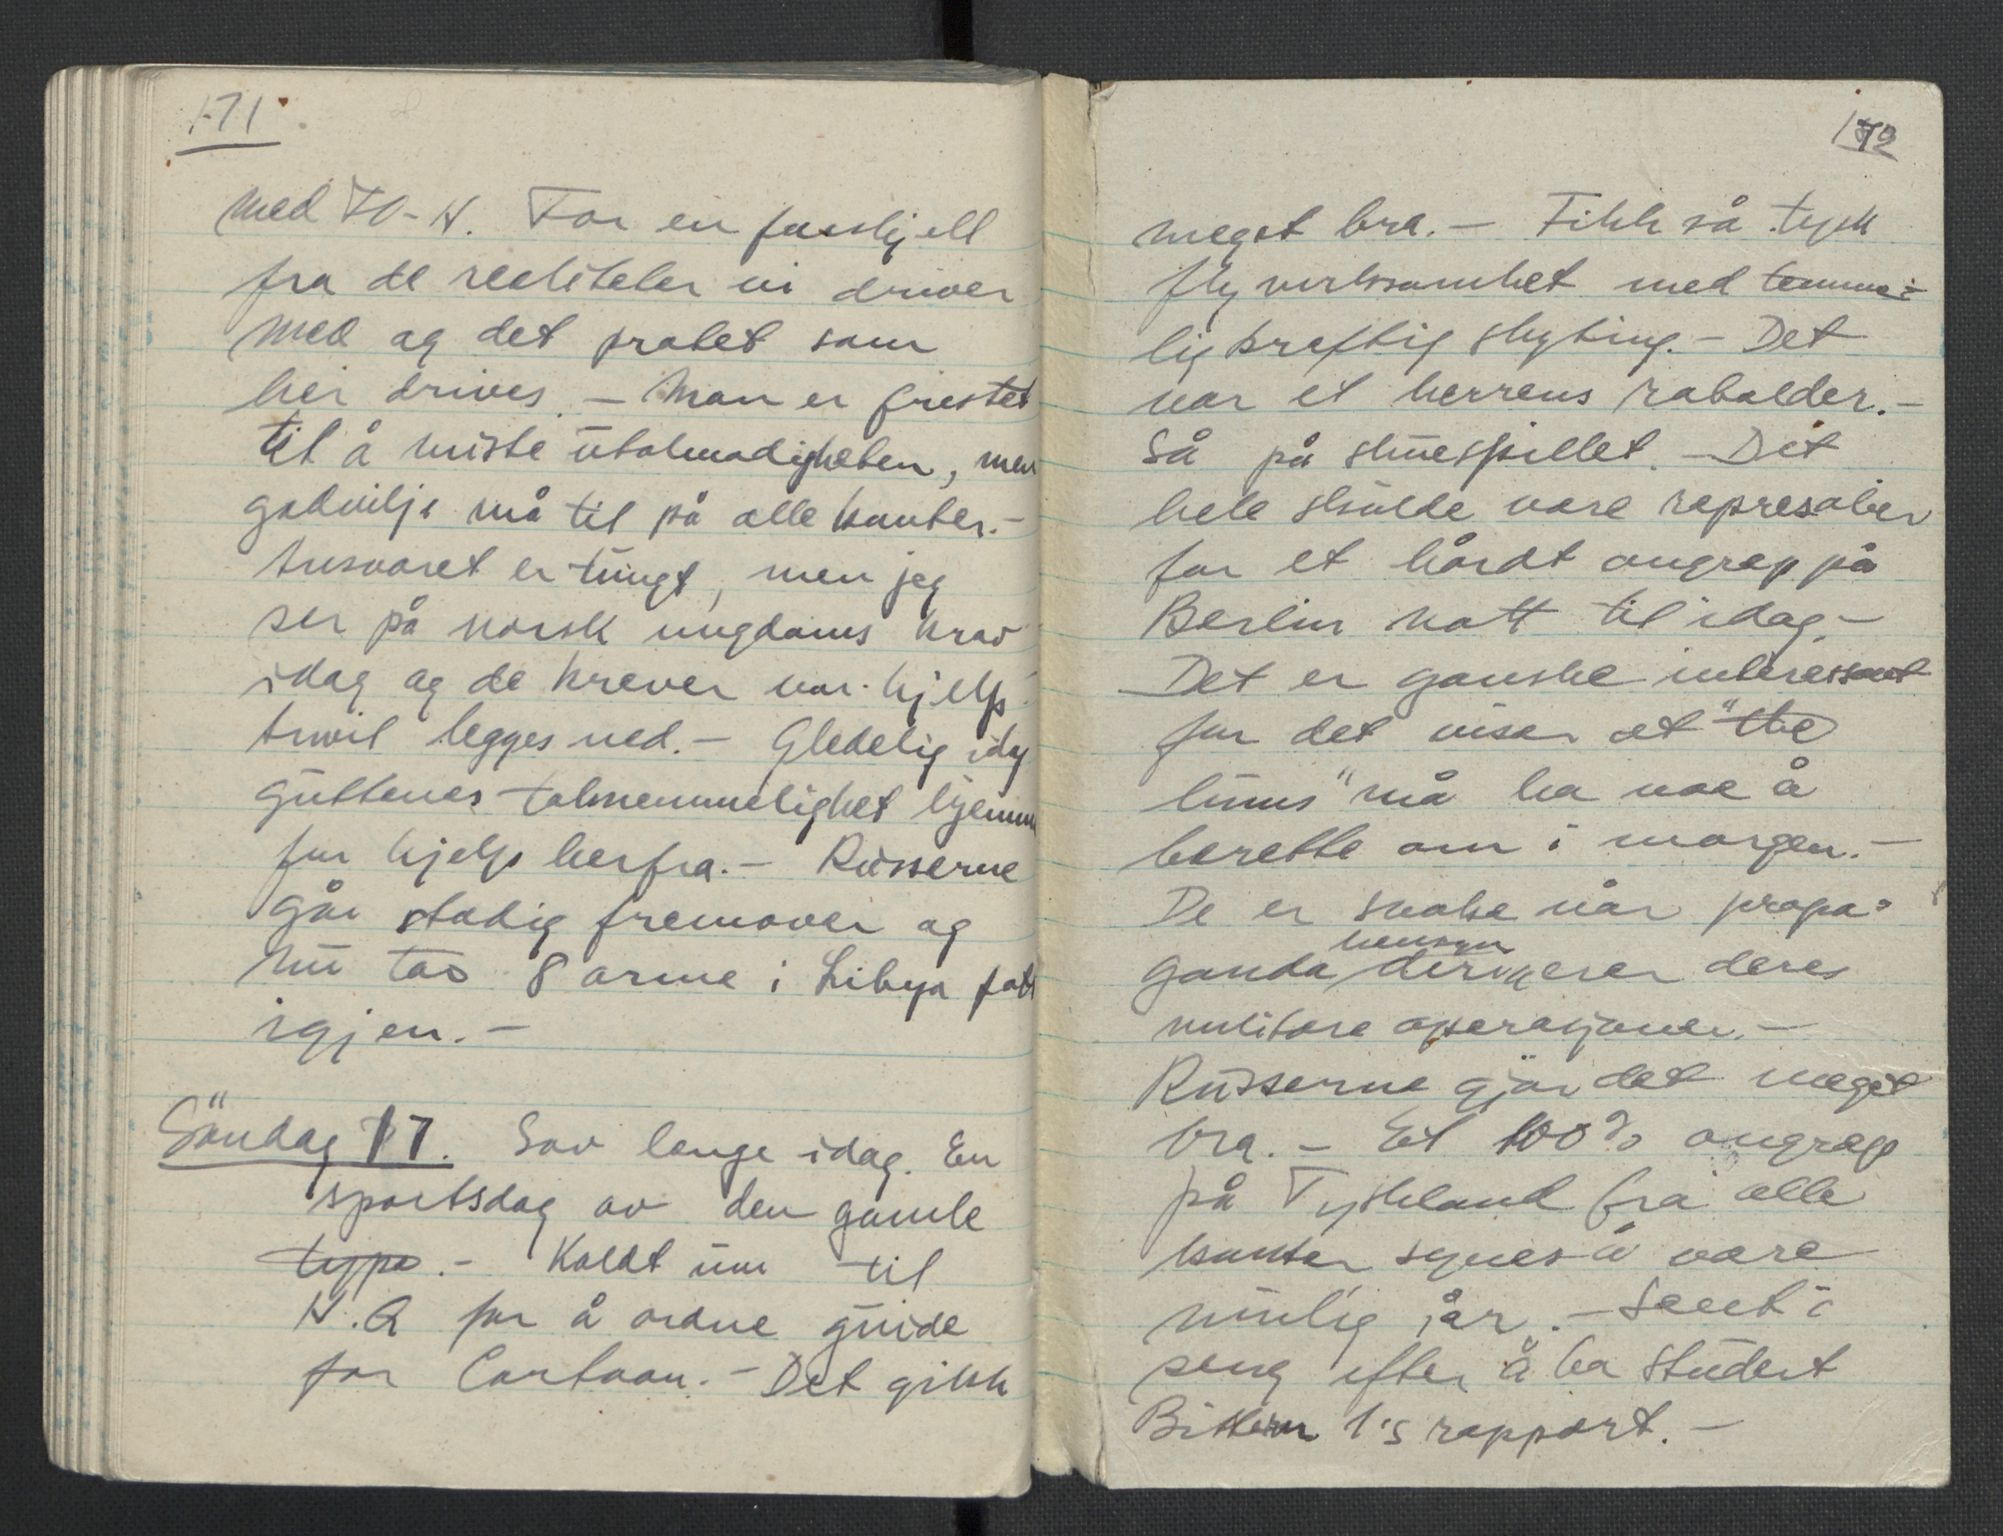 171
med FO-4. For en forskjell
fra de realiteter vi driver
med og det pratet som
her drives. – Man er fristet
til å miste utolmodigheten, men
godvilje må til på alle kanter. –
Ansvaret er tungt, men jeg
ser på norsk ungdoms krav
idag og de krever vår hjelp
tvil legges ned. – Gledelig idag
guttenes taknemmelighet hjemme
for hjelp herfra. – Russerne
går stadig fremover og
nu tas 8 arme i Libya fatt
igjen. –
Söndag 17. Sov lenge idag. En
sportsdag av den gamle
type. – Kaldt inn til
H.Q for å ordne guide
for Cartoon. – Det gikk
172
meget bra. – Fikk så tysk
flyvirksomhet med temme-
lig kraftig skyting. – Det
var et herrens rabalder. –
Så på skuespillet. – Det
hele skulde være represalier
for et hårdt angrep på
Berlin natt til idag. –
Det er ganske interessant
for det viser at "the
huns" må ha noe å
berette om i morgen. –
De er svake når propa-
ganda hensyn dirigerer deres
militære operasjoner. –
Russerne gjör det meget
bra. – Et 100% angrep
på Tyskland fra alle
kanter synes å være
mulig i år. – Sent i
seng efter å ha studert
Bittern 1's rapport. –